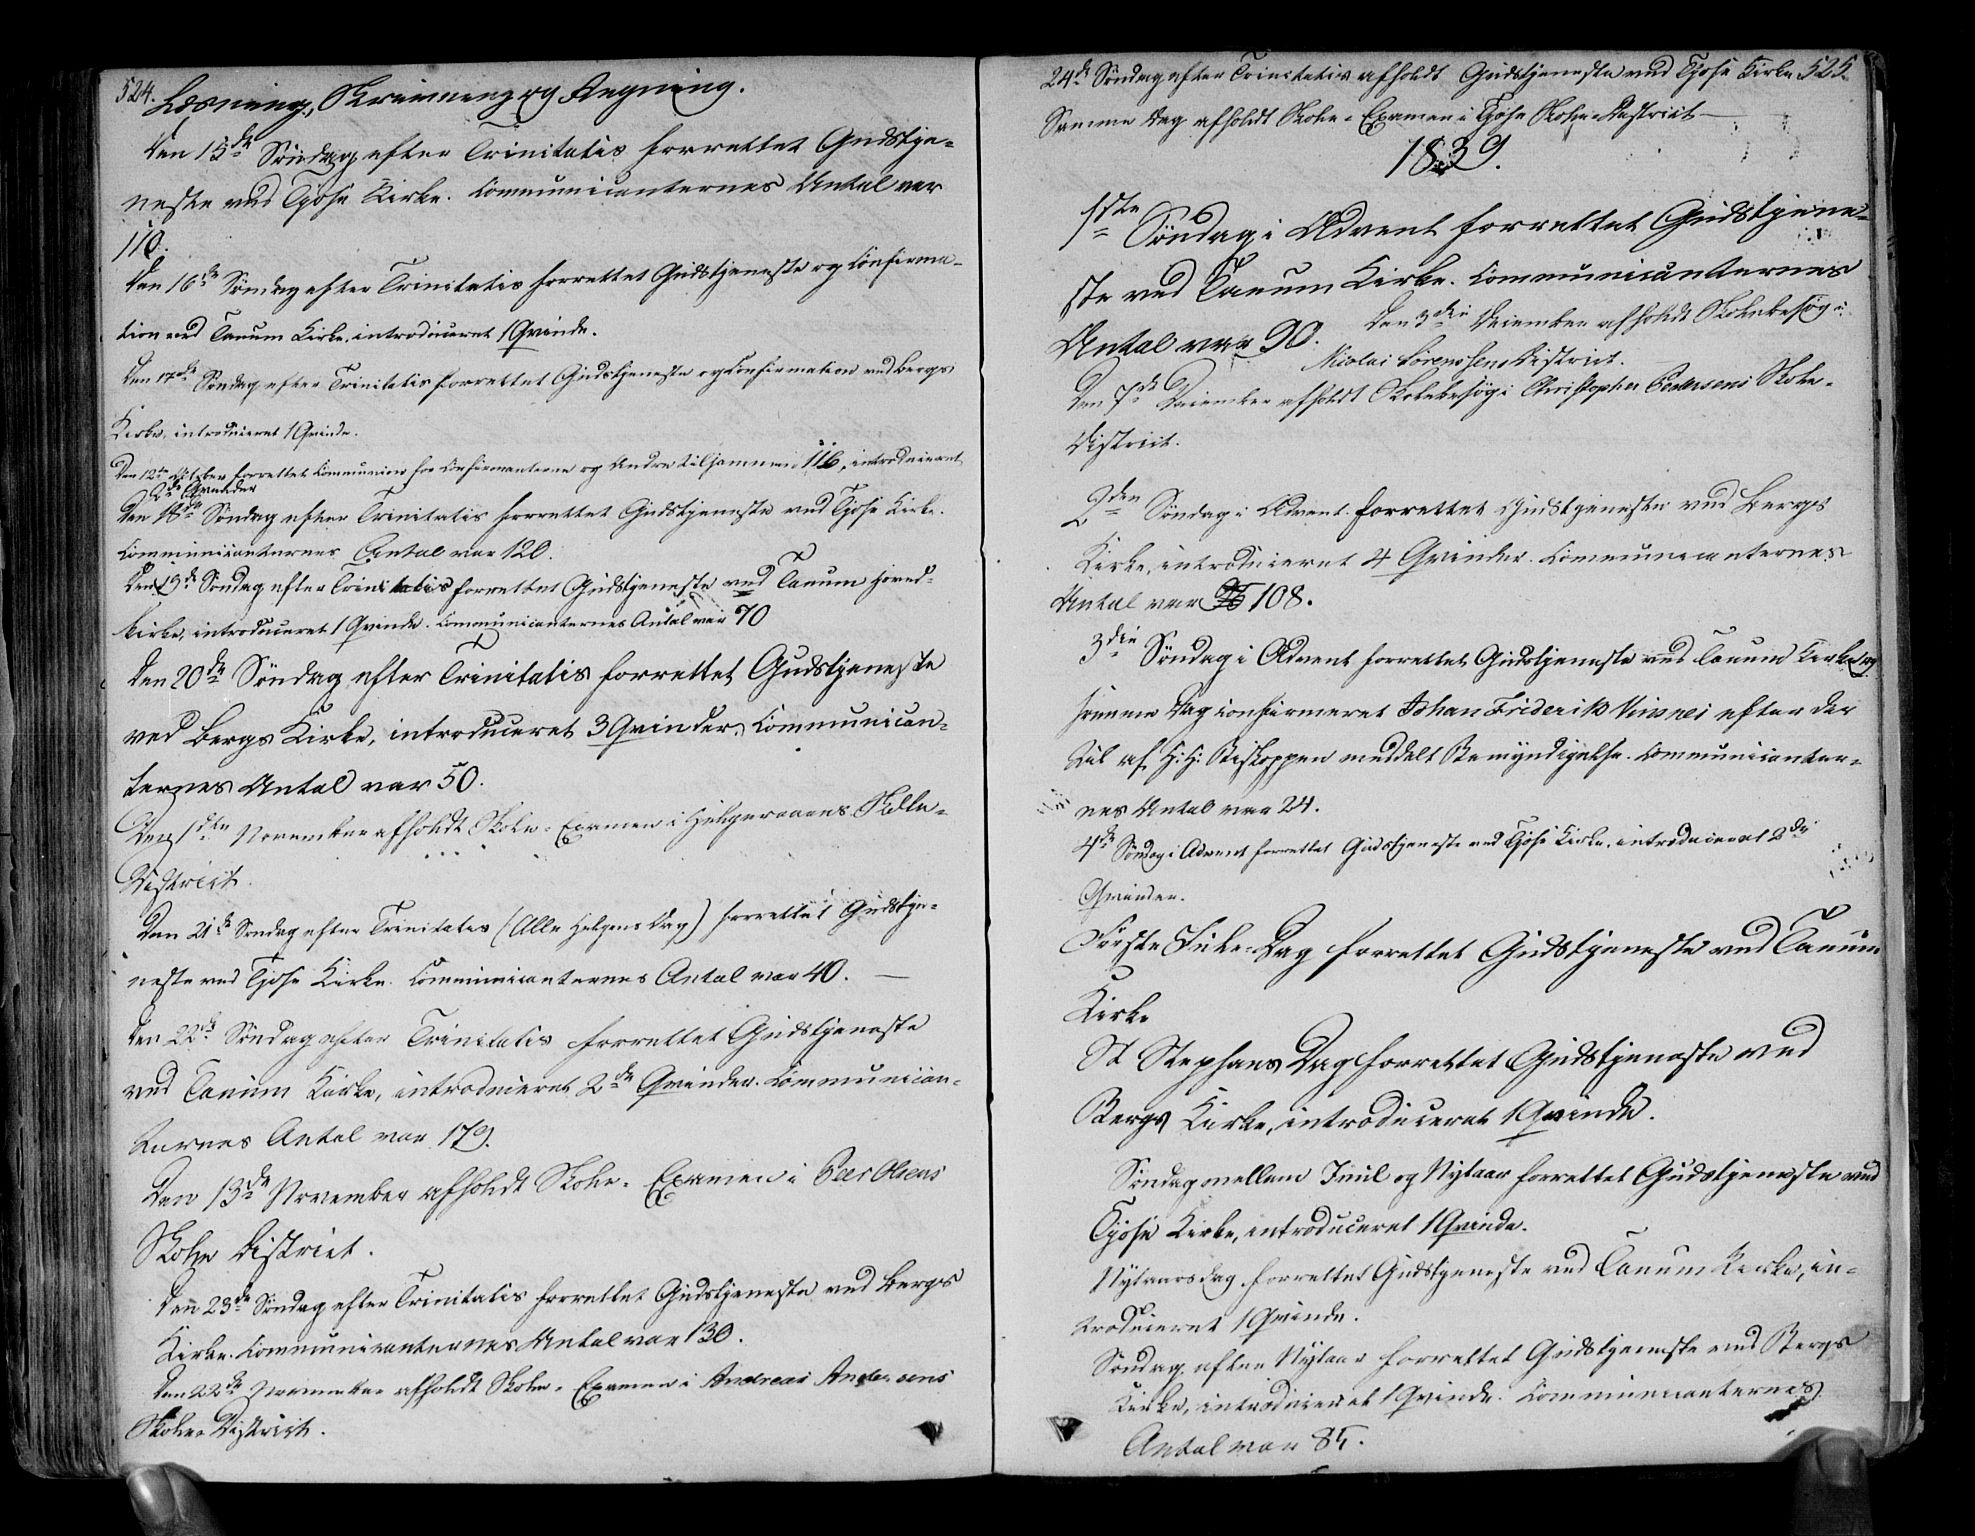 524.
Læsning, Skrivning og Regning.
Den 15de Søndag efter Trinitatis forrettet Gudstje-
neste ved Tjøse Kirke. Communicanternes Antal var
110.
Den 16de Søndag efter Trinitatis forrettet Gudstjeneste og Confirma-
tion ved Tanum Kirke, introduceret 1 Qvinde.
Den 17de Søndag efter Trinitatis forrettet Gudstjeneste og Confirmation ved Bergs
Kirke, introduceret 1 Qvinde.
Den 12te October forrettet Communion for Confirmanterne og Andre tilsammen 116, introduceret
2de Qvinder
Den 18de Søndag efter Trinitatis forrettet Gudstjeneste ved Tjøse Kirke.
Communicanternes Antal var 120.
Den 19de Søndag efter Trinitatis forrettet Gudstjeneste ved Tanum Hoved-
kirke, introduceret 1 Qvinde. Communicanternes Antal var 70
Den 20de Søndag efter Trinitatis forrettet Gudstjeneste
ved Bergs Kirke, introduceret 3 Qvinder. Communican-
ternes Antal var 50.
Den 1ste November afholdt Skole-Examen i Helgeraaens Skole-
District.
Den 21de Søndag efter Trinitatis (Alle Helgens Dag) forrettet Gudstje-
neste ved Tjøse Kirke. Communicanternes Antal var 40. —
Den 22de Søndag efter Trinitatis forrettet Gudstjeneste
ved Tanum Kirke, introduceret 2de Qvinder. Communican-
ternes Antal var 179.
Den 13de November afholdt Skole-Examen i Peer Olsens
Skole District.
Den 23de Søndag efter Trinitatis forrettet Gudstjeneste ved Bergs
Kirke. Communicanternes Antal var 130.
Den 22de November afholdt Skole-Examen i Andreas Andersens
Skole District.
24de Søndag efter Trinitatis afholdt Gudstjeneste ved Tjøse Kirke 525.
Samme Dag afholdt Skole-Examen i Tjøse Skole-District —
1839.
1ste Søndag i Advent forrettet Gudstjene-
ste ved Tanum Kirke. Communicanternes
Antal var 90. Den 3die December afholdt Skolebesøg i
Nicolai Sørenssens District.
Den 7de December afholdt Skolebesøg i Christopher Pedersens Skole-
District.
2den Søndag i Advent forrettet Gudstjeneste ved Bergs
Kirke, introduceret 4 Qvinder. Communicanternes
Antal var 108.
3die Søndag i Advent forrettet Gudstjeneste ved Tanum Kirke og
samme Dag confirmeret Johan Friderik Vinsnes efter der
til af H: H: Biskoppen meddelt Bemyndigelse. Communicanter-
nes Antal var 24.
4de Søndag i Advent forrettet Gudstjeneste ved Tjøse Kirke, introduceret 2de
Qvinder.
Første Jule-Dag forrettet Gudstjeneste ved Tanum
Kirke
St Stephans Dag forrettet Gudstjeneste ved
Bergs Kirke, introduceret 1 Qvinde.
Søndag mellem Juul og Nytaar forrettet Gudstjeneste ved
Tjøse Kirke, introduceret 1 Qvinde.
Nytaarsdag forrettet Gudstjeneste ved Tanum Kirke, in-
troduceret 1 Qvinde.
Søndag efter Nytaar forrettet Gudstjeneste ved Bergs
Kirke, introduceret 1 Qvinde. Communicanternes
Antal var 85.